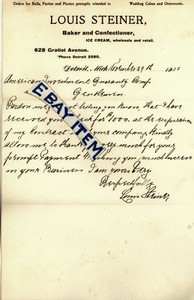 Orders for Balls, Parties and Parties promptly attended to
Wedding Cakes and Ornaments.
LOUIS STEINER,
Baker and Confectioner,
ICE CREAM, wholesale and retail.
628 Gratiot Avenue.
'Phone Detroit 2980.
Detroit, Mich.
American Investment Guaranty Comp
Gentlemen
Pardon me for not letting you know that I have
received your Check for 1000. at the expiration
of my Contract your Company kindly
allow me to thank much for your
prompt Payment you much success
in your Business I am yours Very
Respectfully
Louis Steiner
EBAY ITEM